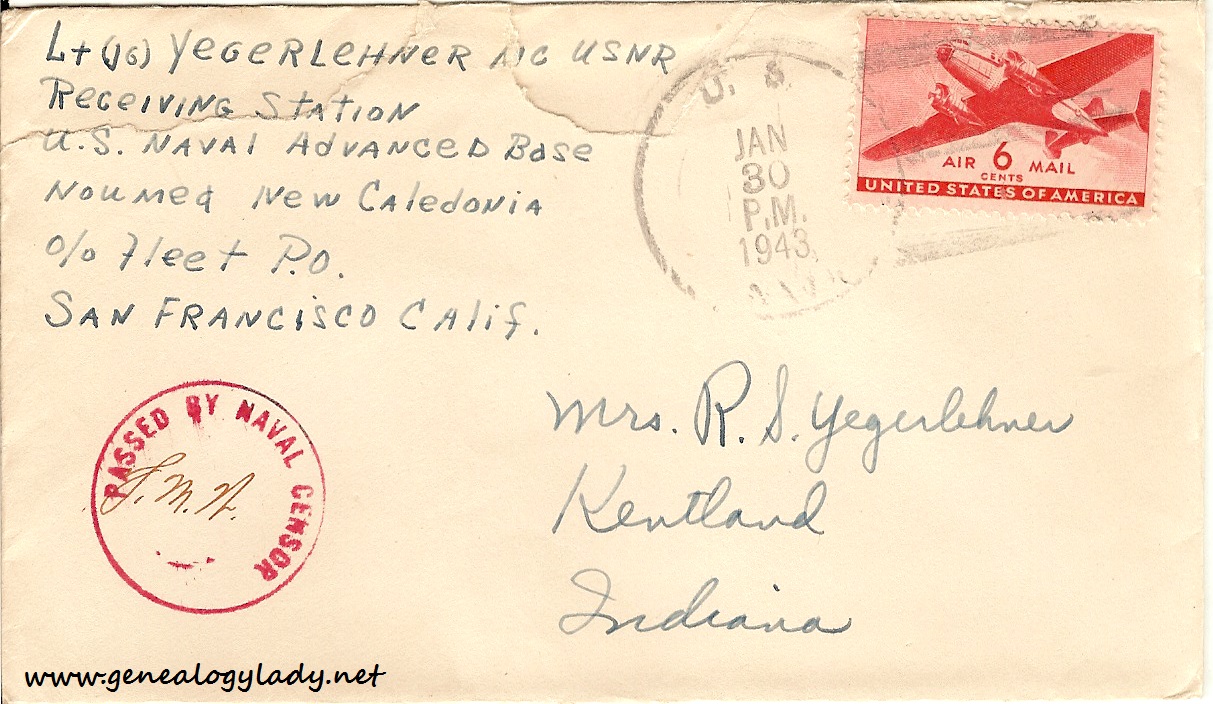 Lt (JG) Yegerlehner MC USNR
Receiving Station
U.S. Naval Advanced Base
Noumea New Caledonia
c/o Fleet P.O.
San Francisco Calif.
U. S.
JAN
30
P.M.
1943
AIR 6 MAIL
CENTS
UNITED STATES OF AMERICA
Mrs. R. S. Yegerlehner
Kentland
Indiana
PASSED BY NAVAL CENSOR
www.genealogylady.net